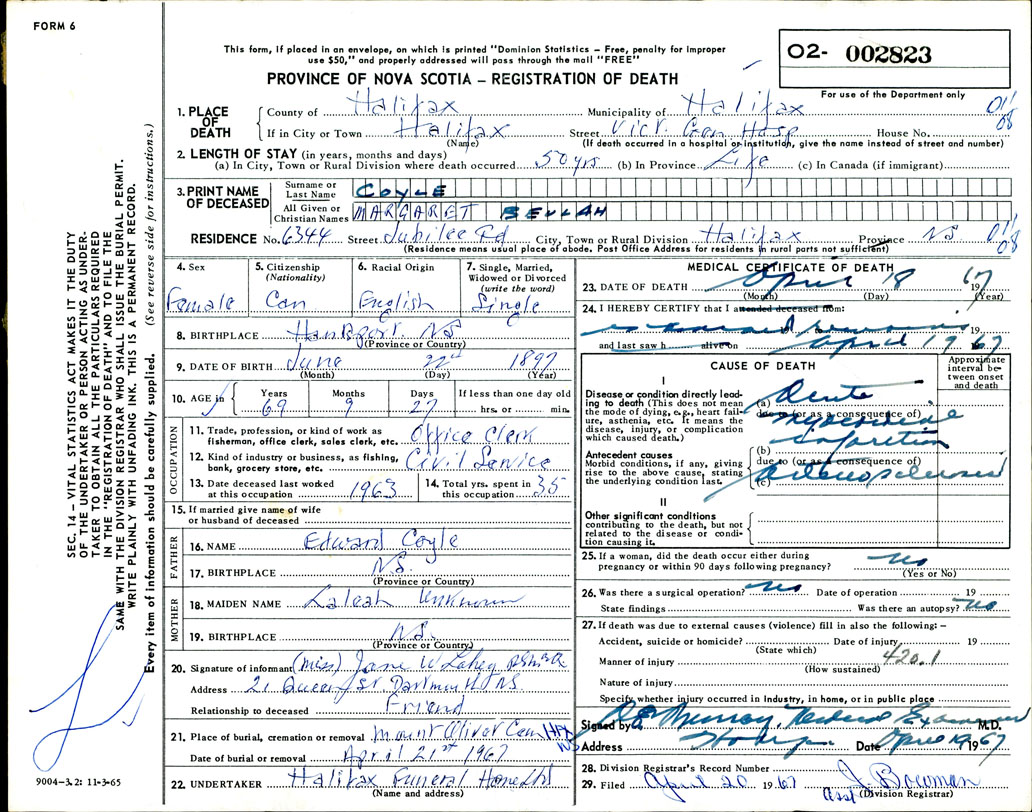 FORM 6
This form, if placed in an envelope, on which is printed "Dominion Statistics – Free, penalty for improper
use $50," and properly addressed will pass through the mail "FREE"
O2- 002823
For use of the Department only
PROVINCE OF NOVA SCOTIA – REGISTRATION OF DEATH
SEC. 14 – VITAL STATISTICS ACT MAKES IT THE DUTY
OF THE UNDERTAKER OR PERSON ACTING AS UNDER-
TAKER TO OBTAIN ALL THE PARTICULARS REQUIRED
IN THE "REGISTRATION OF DEATH" AND TO FILE THE
SAME WITH THE DIVISION REGISTRAR WHO SHALL ISSUE THE BURIAL PERMIT.
WRITE PLAINLY WITH UNFADING INK. THIS IS A PERMANENT RECORD.
Every item of information should be carefully supplied. (See reverse side for instructions.)
1. PLACE OF DEATH
County of Halifax Municipality of Halifax 01/08
If in City or Town Halifax Street Vict. Gen Hosp House No.
(Name) (If death occurred in a hospital or institution, give the name instead of street and number)
2. LENGTH OF STAY (in years, months and days)
(a) In City, Town or Rural Division where death occurred 50 yrs (b) In Province Life (c) In Canada (if immigrant)
3. PRINT NAME OF DECEASED
Surname or Last Name COYLE
All Given or Christian Names MARGARET BEULAH
RESIDENCE No. 6344 Street Jubilee Rd City, Town or Rural Division Halifax Province NS 01/08
(Residence means usual place of abode. Post Office Address for residents in rural parts not sufficient)
4. Sex Female
5. Citizenship (Nationality) Can
6. Racial Origin English
7. Single, Married, Widowed or Divorced (write the word) Single
8. BIRTHPLACE Hantsport NS
(Province or Country)
9. DATE OF BIRTH June 22nd 1897
(Month) (Day) (Year)
10. AGE in Years 69 Months 9 Days 27 If less than one day old hrs. or min.
OCCUPATION
11. Trade, profession, or kind of work as
fisherman, office clerk, sales clerk, etc. Office Clerk
12. Kind of industry or business, as fishing,
bank, grocery store, etc. Civil Service
13. Date deceased last worked at this occupation 1963
14. Total yrs. spent in this occupation 35
15. If married give name of wife
or husband of deceased
FATHER
16. NAME Edward Coyle
17. BIRTHPLACE N.S.
(Province or Country)
MOTHER
18. MAIDEN NAME Laleah Unknown
19. BIRTHPLACE N.S.
(Province or Country)
20. Signature of informant (Miss) Jane W Lahey
Address 21 Queen St Dartmouth N.S.
Relationship to deceased Friend
21. Place of burial, cremation or removal Mount Olivet Cem Hfx NS
Date of burial or removal April 21st 1967
22. UNDERTAKER Halifax Funeral Home Ltd
(Name and address)
9004–3.2: 11-3-65
MEDICAL CERTIFICATE OF DEATH
23. DATE OF DEATH April 18 1967
(Month) (Day) (Year)
24. I HEREBY CERTIFY that I attended deceased from:
examined remains 19
and last saw h alive on April 19 1967
CAUSE OF DEATH
Approximate interval between onset and death
I
Disease or condition directly leading to death (This does not mean
the mode of dying, e.g., heart failure, asthenia, etc. It means the
disease, injury, or complication which caused death.)
(a) Acute
due to (or as a consequence of)
myocardial
infarction
Antecedent causes
Morbid conditions, if any, giving rise to the above cause, stating
the underlying condition last.
(b)
due to (or as a consequence of)
Arteriosclerosis
(c)
II
Other significant conditions
contributing to the death, but not
related to the disease or condition causing it.
25. If a woman, did the death occur either during
pregnancy or within 90 days following pregnancy? No
(Yes or No)
26. Was there a surgical operation? No Date of operation 19
State findings Was there an autopsy? No
27. If death was due to external causes (violence) fill in also the following: –
Accident, suicide or homicide? Date of injury 19
(State which)
Manner of injury 420.1
(How sustained)
Nature of injury
Specify whether injury occurred in Industry, in home, or in public place
Signed by Murray, Medical Examiner M.D.
Address Date April 19 1967
28. Division Registrar's Record Number
29. Filed April 20 1967 J. Bowman
Asst (Division Registrar)